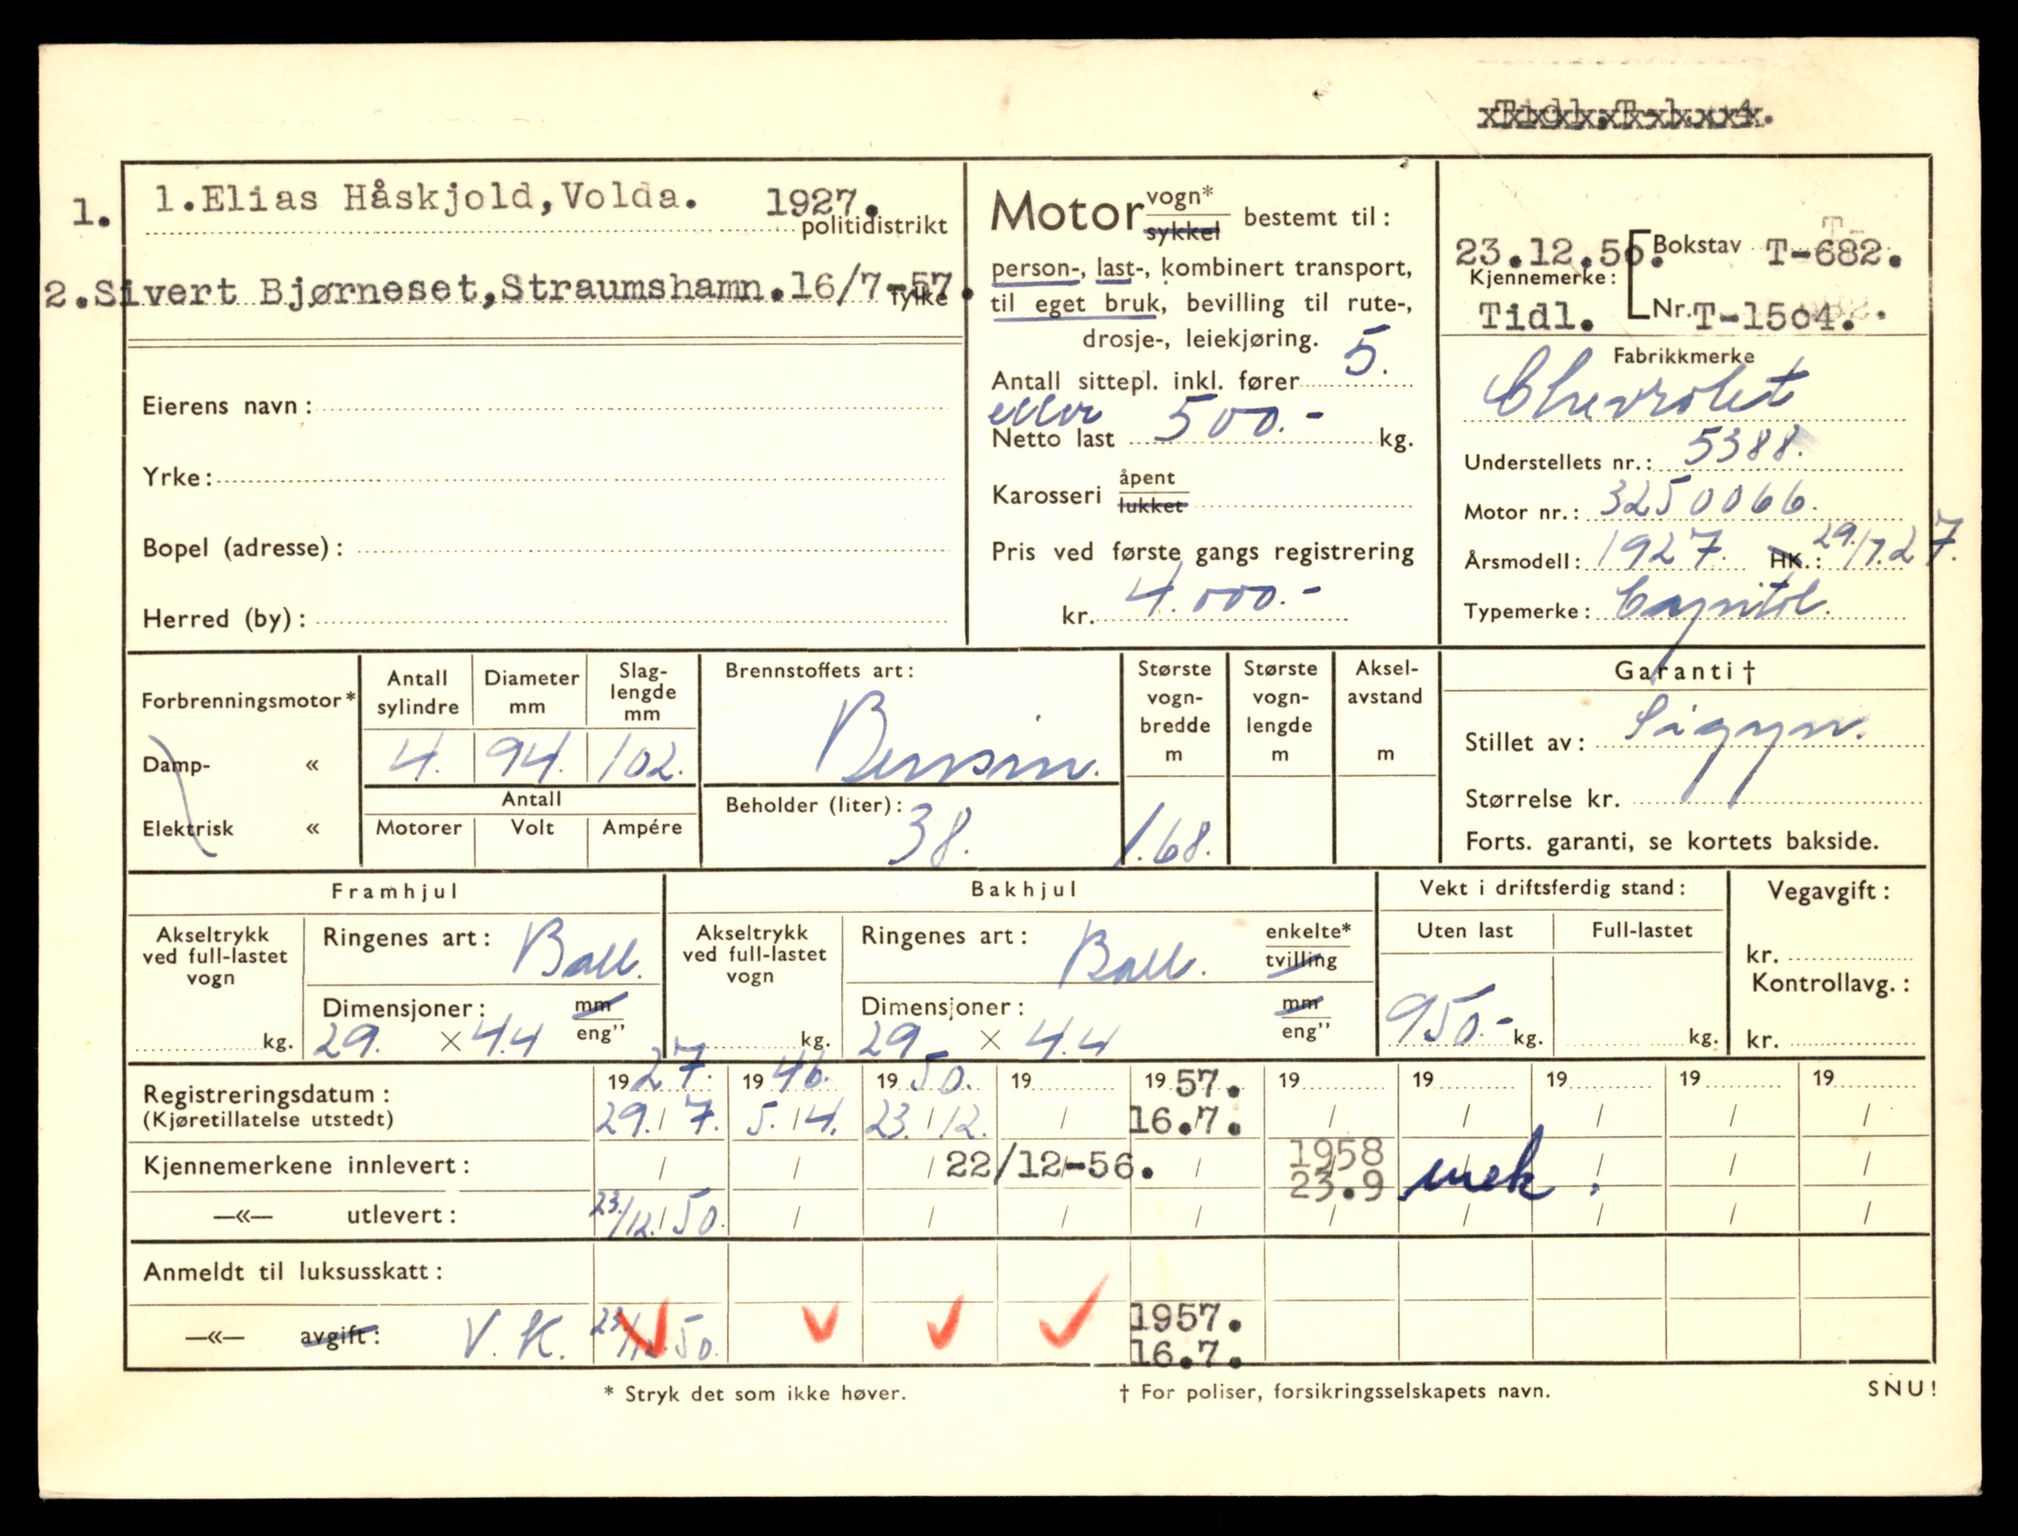 1. 1.Elias Håskjold,Volda. 1927.
politidistrikt
2.Sivert Bjørneset,Straumshamn.16/7-57.
fylke
Eierens navn:
Yrke:
Bopel (adresse):
Herred (by):
Motor vogn* sykkel bestemt til:
person-, last-, kombinert transport,
til eget bruk, bevilling til rute-,
drosje-, leiekjøring.
Antall sittepl. inkl. fører 5.
eller
Netto last 500.- kg.
Karosseri åpent lukket
Pris ved første gangs registrering
kr. 4.000.-
Bokstav T-682.
Kjennemerke:
Tidl. Nr. T-1504.
Fabrikkmerke
Chevrolet
Understellets nr.: 5388.
Motor nr.: 3250066.
Årsmodell: 1927. HK.: 29./7.27.
Typemerke: Capitol.
Forbrenningsmotor*
Damp- «
Elektrisk «
Antall sylindre
Diameter mm
Slag-lengde mm
4. 94. 102.
Antall
Motorer Volt Ampére
Brennstoffets art:
Bensin.
Beholder (liter): 38.
Største vogn-bredde m
1.68.
Største vogn-lengde m
Aksel-avstand m
Garanti †
Stillet av: Sigyn.
Størrelse kr.
Forts. garanti, se kortets bakside.
Framhjul
Akseltrykk ved full-lastet vogn
kg.
Ringenes art: Ball.
Dimensjoner: mm eng”
29. × 4.4
Bakhjul
Akseltrykk ved full-lastet vogn
kg.
Ringenes art: Ball. enkelte* tvilling
Dimensjoner: mm eng”
29 × 4.4
Vekt i driftsferdig stand:
Uten last Full-lastet
950.- kg. kg.
Vegavgift:
kr.
Kontrollavg.:
kr.
Registreringsdatum: 1927. 1946. 1950. 19 1957. 19 19 19 19 19
(Kjøretillatelse utstedt) 29./7. 5./4. 23./12. / 16.7. / / / / /
Kjennemerkene innlevert: / / / 22/12-56. / 1958 23.9 mek. / / /
—«— utlevert: 23./12.50. / / / / / / / / /
Anmeldt til luksusskatt:
—«— avgift: V.K. 23./12.50. 1957. 16.7.
* Stryk det som ikke høver.
† For poliser, forsikringsselskapets navn.
SNU!